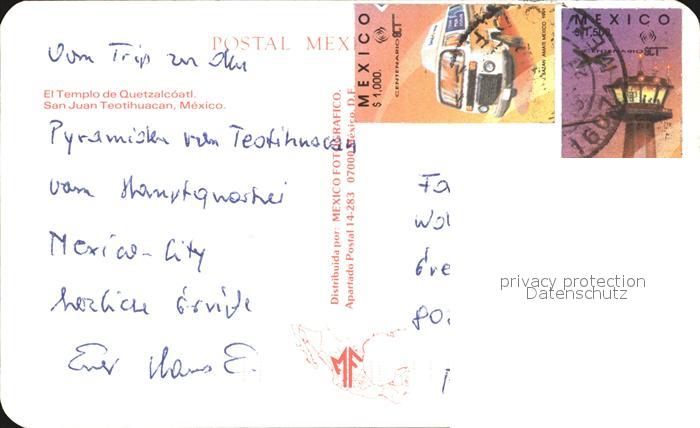 POSTAL MEXI
Vom Trip zu den
El Templo de Quetzalcóatl.
San Juan Teotihuacan, México.
Pyramiden von Teotihuacan
vom Hauptquartier
Mexico-City
herzliche Grüße
Euer Hans E.
Distribuida por: MEXICO FOTOGRAFICO.
Apartado Postal 14-283 07000 México, D.F.
MF
MEXICO
$ 1,000.
CENTENARIO SCT
MEXICO 1991
MEXICO
$ 1,500.
CENTENARIO SCT
Fa
Wol
Gre
privacy protection
Datenschutz